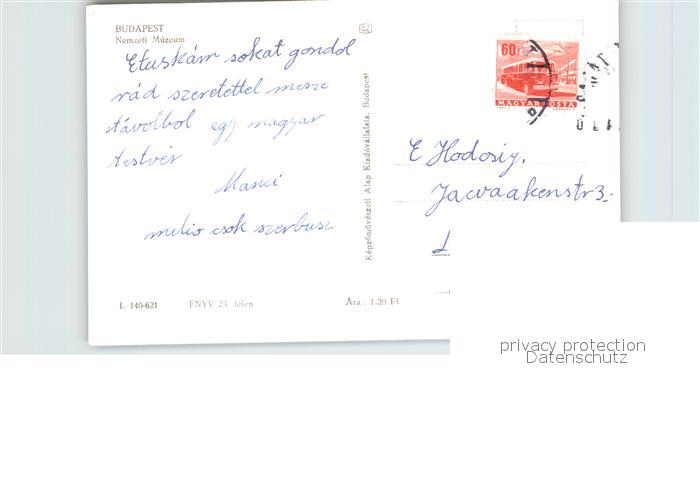 BUDAPEST
Nemzeti Múzeum
Etuskám sokat gondol
rád szeretettel messze
távolbol egy magyar
testvér
Manci
milio csok szerbusz
I. 140-621 FNYV 23. telep Ára: 1.20 Ft
Képzőművészeti Alap Kiadóvállalata, Budapest
60
MAGYAR POSTA
E Hodosig.
privacy protection
Datenschutz